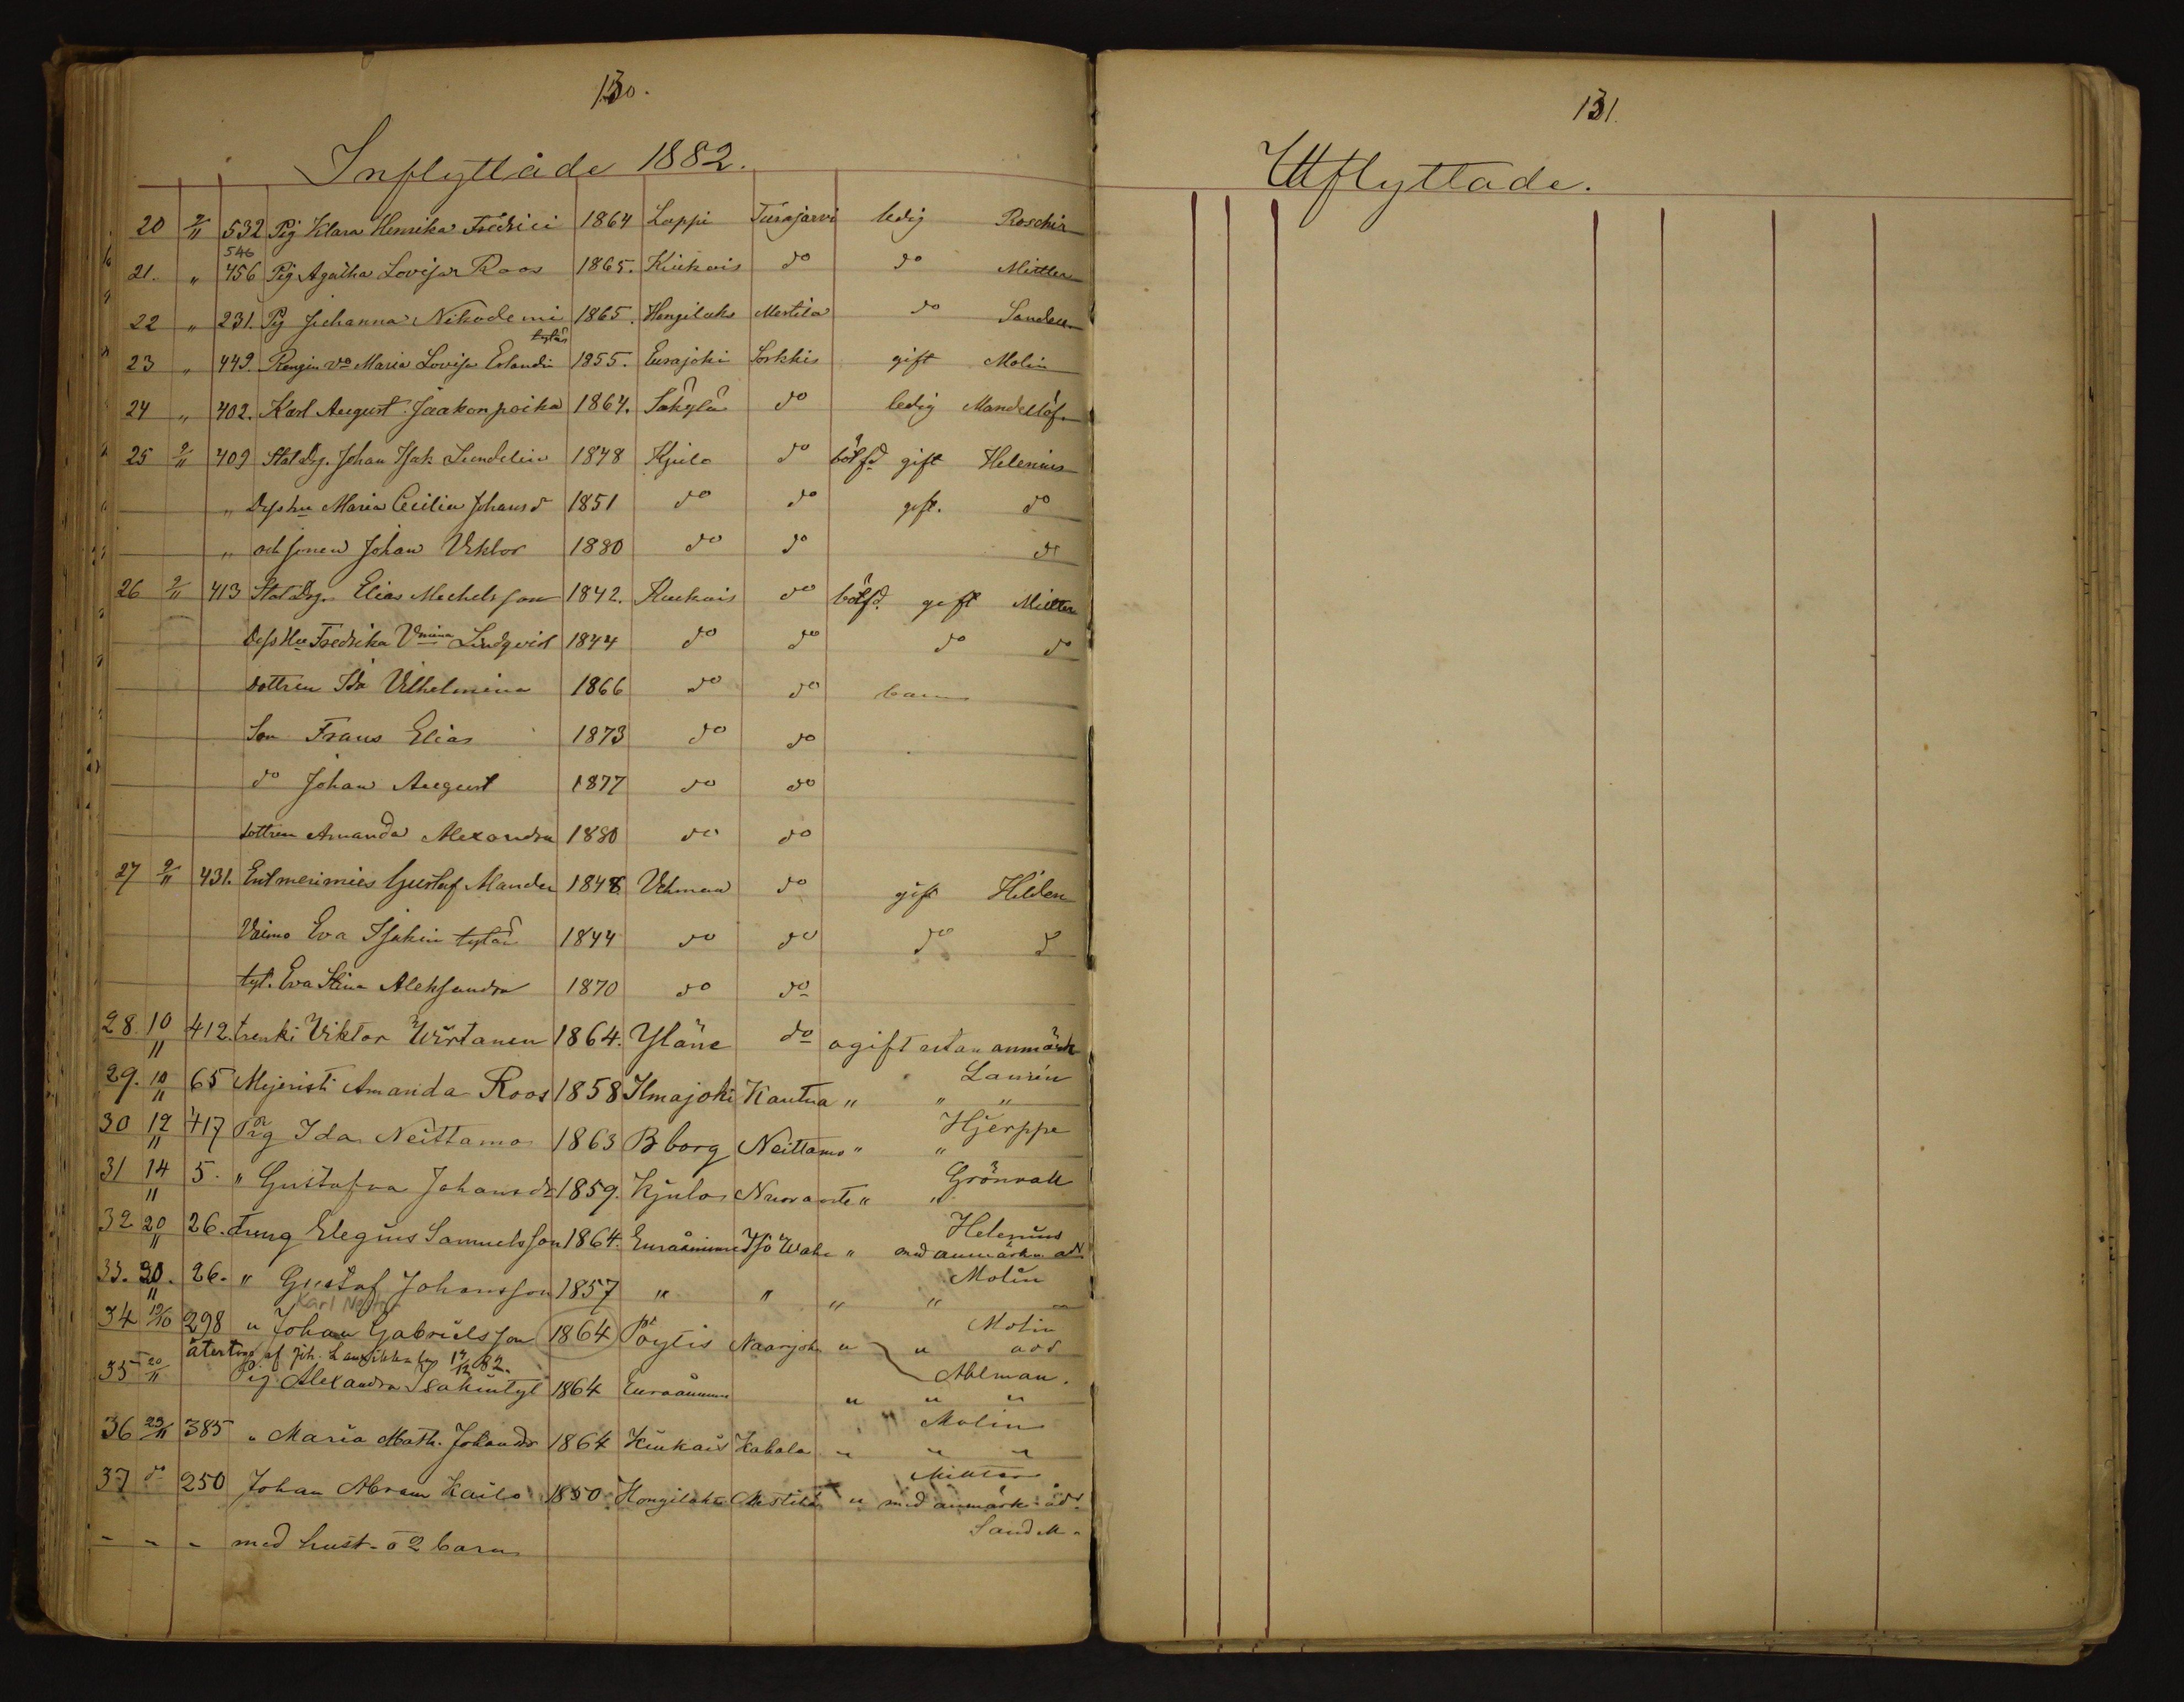 130.
Inflyttade 1882.
20 9/11 532 Pig Klara Henrika Fredrici 1864 Lappi Turajärvi ledig Roschier
546
21. " 456 Pig Agatha Lovisa Roos 1865. Kiukais do do
22 " 231. Pig Johanna Nikodemi 1865. Hongilaks Mestilä do Sandell
tytär
23 " 449. Rengin vo Maria Lovisa Erlandin 1855. Eurajoki Sorkkis gift Molin
24 " 402. Karl August Jaakonpoika 1864. Säkylä do ledig Mandellöf
25 9/11 409 Stat Drg. Johan Isak Lundelin 1848 Kjulo do gift Helenius
" Dess hu Maria Cecilia Johansd 1851 do do gift. do
" och sonen Johan Viktor 1880 do do do
26 9/11 413 Stat Drg. Elias Michelsson 1842. Kiukais do gift
Dess Hu Fredrika Vmina Lindqvist 1844 do do do do
dottren Ida Vilhelmina 1866 do do barn
Son Frans Elias 1873 do do
do Johan August 1877 do do
dottren Amanda Alexandra 1880 do do
27 9/11 431. Entmerimies Gustaf Mander 1848 Vehmaa do gift Hilden
Vaimo Eva Isakin tytär 1844 do do do d
tyt. Eva Stina Aleksandra 1870 do do
28. 10/11 412. trenki Viktor Wirtanen 1864. Yläne do ogift utan anmärk
Laurén
29. 10/11 65 Mejeristi Amanda Roos 1858 Ilmajoki Kantua " " "
Hjerppe
30 12/11 417 Pig Ida Neittamo 1863 Bborg Neittamo " "
Grönvall
31 14/11 5. " Gustafva Johansdr 1859. Kjulo " "
Helenius
32 20/11 26. dreng Elegius Samuelsson 1864. Euraåminne Iso Wahe " med anmärkn
Molin
33. 20/11. 26. " Gustaf Johansson 1857 " " " "
Karl
Molin
34 19/10 298 " Johan Gabrielsson 1864 Pöytis " "
återtog af Joh. 14/12 82.
Ahlman.
35 20/11 Pig Alexandra Isakintyt 1864 Euraåminne " " "
Molin
36 29/11 385 " Maria Math. Johansdr 1864 Kiukais Kakala " " "
37 do 250 Johan Abram Kailo 1850 Hongilaks Mestilä " med anmärk
Sandell
" " " med hust. o 2 barn
131.
Utflyttade.